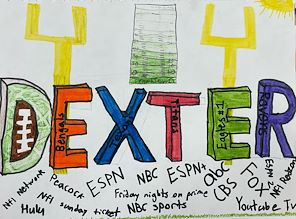 DEXTER
Bengals
Titans
Eagles #1
Nfl Network
Peacock
ESPN
NBC
ESPN+
abc
CBS
FOX
ESPN
Nfl Redzone
Hulu
Nfl Sunday ticket
Friday nights on prime
NBC Sports
Youtube Tv